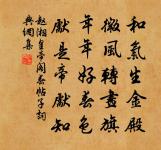 和氣生金殿
微風轉畫旗
年年好春色
獻是帝獻知
趙湘皇帝閣春帖子詞
典網集